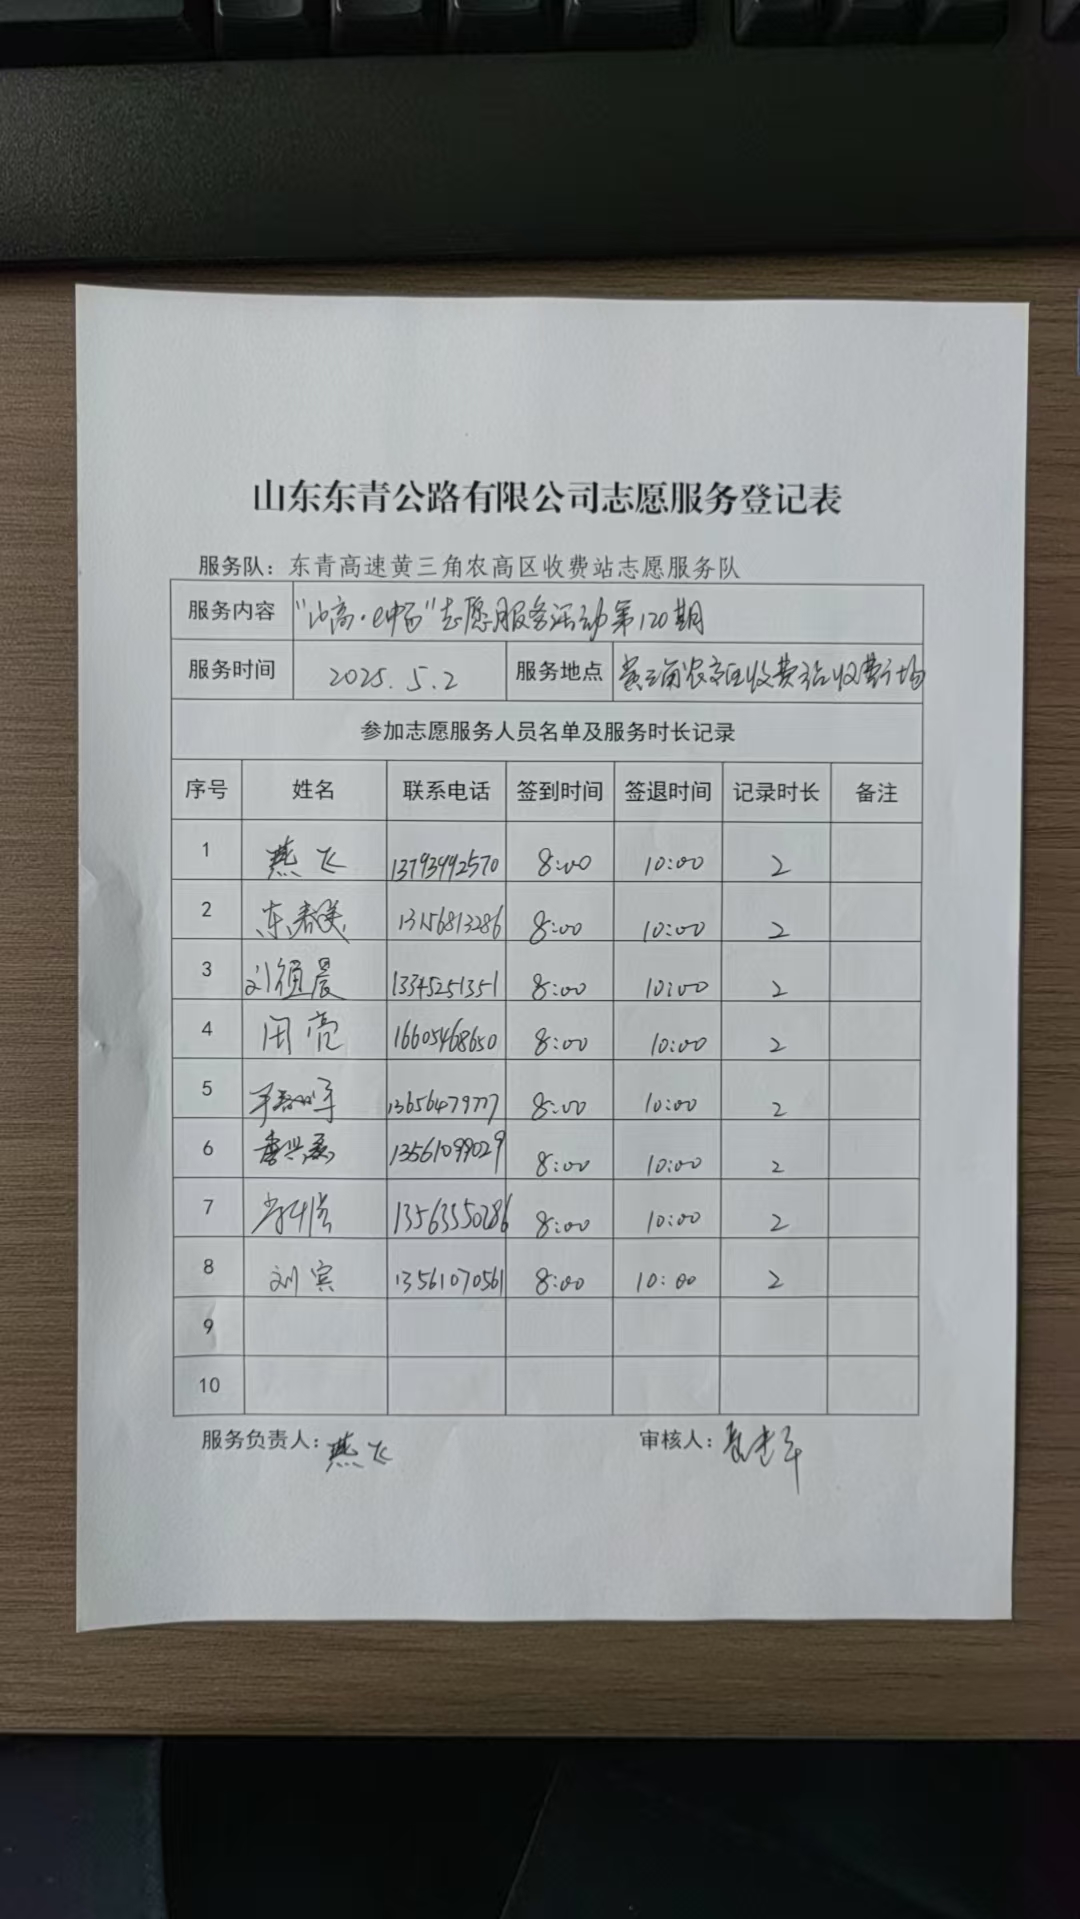 山东东青公路有限公司志愿服务登记表
服务队：东青高速黄三角农高区收费站志愿服务队
服务内容 “山高·e畅”志愿服务活动第120期
服务时间 2025.5.2 服务地点 黄三角农高区收费站收费广场
参加志愿服务人员名单及服务时长记录
序号 姓名 联系电话 签到时间 签退时间 记录时长 备注
1 燕飞 13793492570 8:00 10:00 2
2 13156813286 8:00 10:00 2
3 13345251351 8:00 10:00 2
4 闫亮 16605468650 8:00 10:00 2
5 13656479777 8:00 10:00 2
6 13561099029 8:00 10:00 2
7 13563550286 8:00 10:00 2
8 刘宾 13561070561 8:00 10:00 2
9
10
服务负责人：燕飞 审核人：